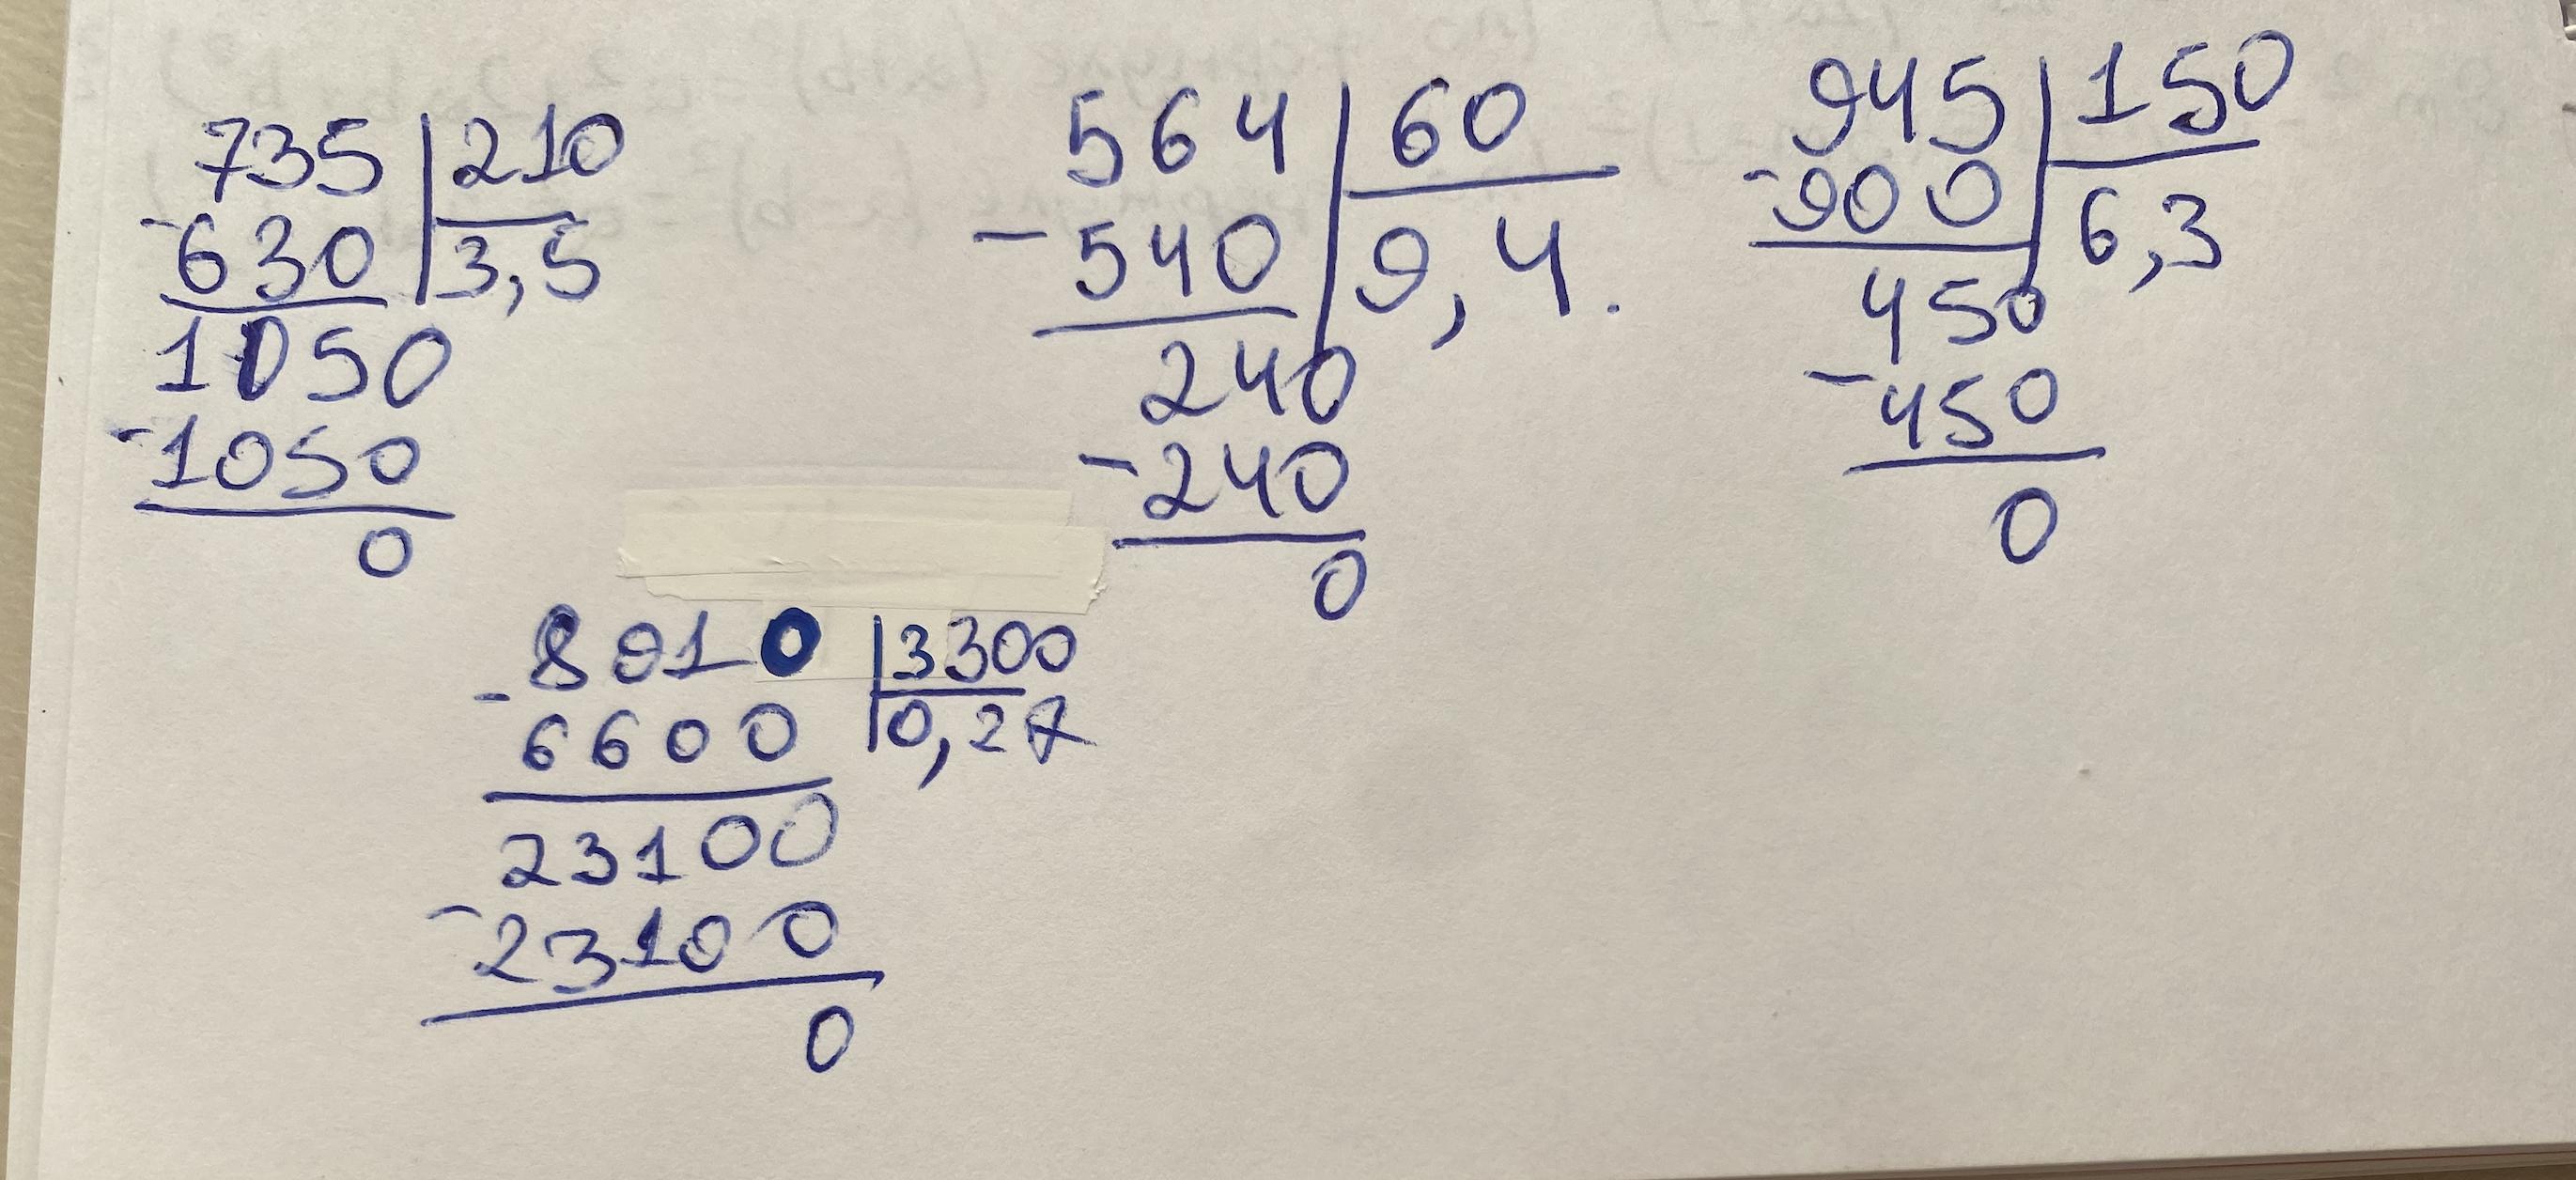 735 210
-630 3,5
1050
-1050
0
564 60
-540 9,4.
240
-240
0
945 150
-900 6,3
450
-450
0
-8910 3300
6600 0,27
23100
-23100
0